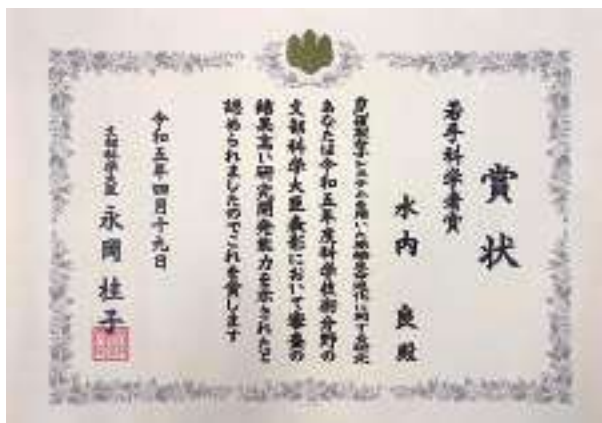 賞状
若手科学者賞
水内 良 殿
システムを用いた に関する研究
あなたは令和五年度科学技術分野の
文部科学大臣表彰において審査の
結果高い研究開発能力を示されたと
認められましたのでこれを賞します
令和五年四月十九日
文部科学大臣 永岡桂子